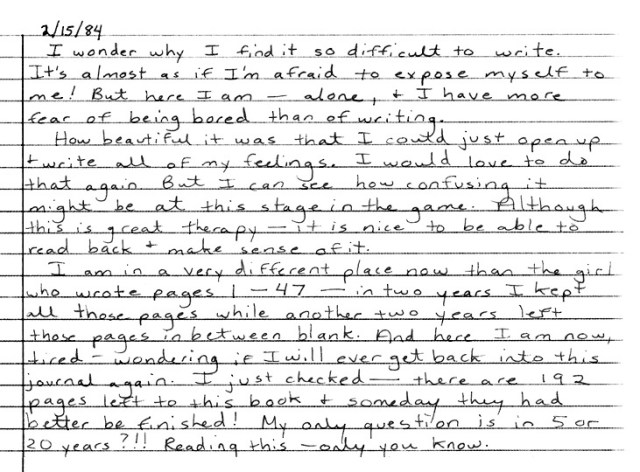 2/15/84
I wonder why I find it so difficult to write.
It's almost as if I'm afraid to expose myself to
me! But here I am — alone, + I have more
fear of being bored than of writing.
How beautiful it was that I could just open up
+ write all of my feelings. I would love to do
that again. But I can see how confusing it
might be at this stage in the game. Although
this is great therapy — it is nice to be able to
read back + make sense of it.
I am in a very different place now than the girl
who wrote pages 1 — 47 — in two years I kept
all those pages while another two years left
those pages in between blank. And here I am now,
tired — wondering if I will ever get back into this
journal again. I just checked — there are 192
pages left to this book + someday they had
better be finished! My only question is in 5 or
20 years?!! Reading this — only you know.